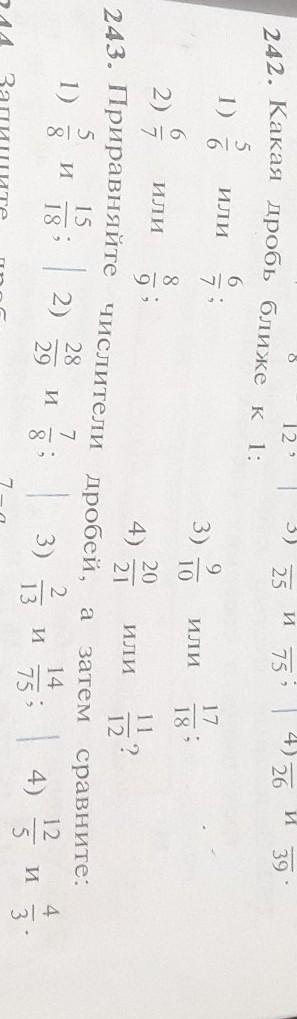 12; | 3) 25 и 75; | 4) 26 и 39.
242. Какая дробь ближе к 1:
1) 5/6 или 6/7; 3) 9/10 или 17/18;
2) 6/7 или 8/9; 4) 20/21 или 11/12?
243. Приравняйте числители дробей, а затем сравните:
1) 5/8 и 15/18; | 2) 28/29 и 7/8; | 3) 2/13 и 14/75; | 4) 12/5 и 4/3.
244. Запишите